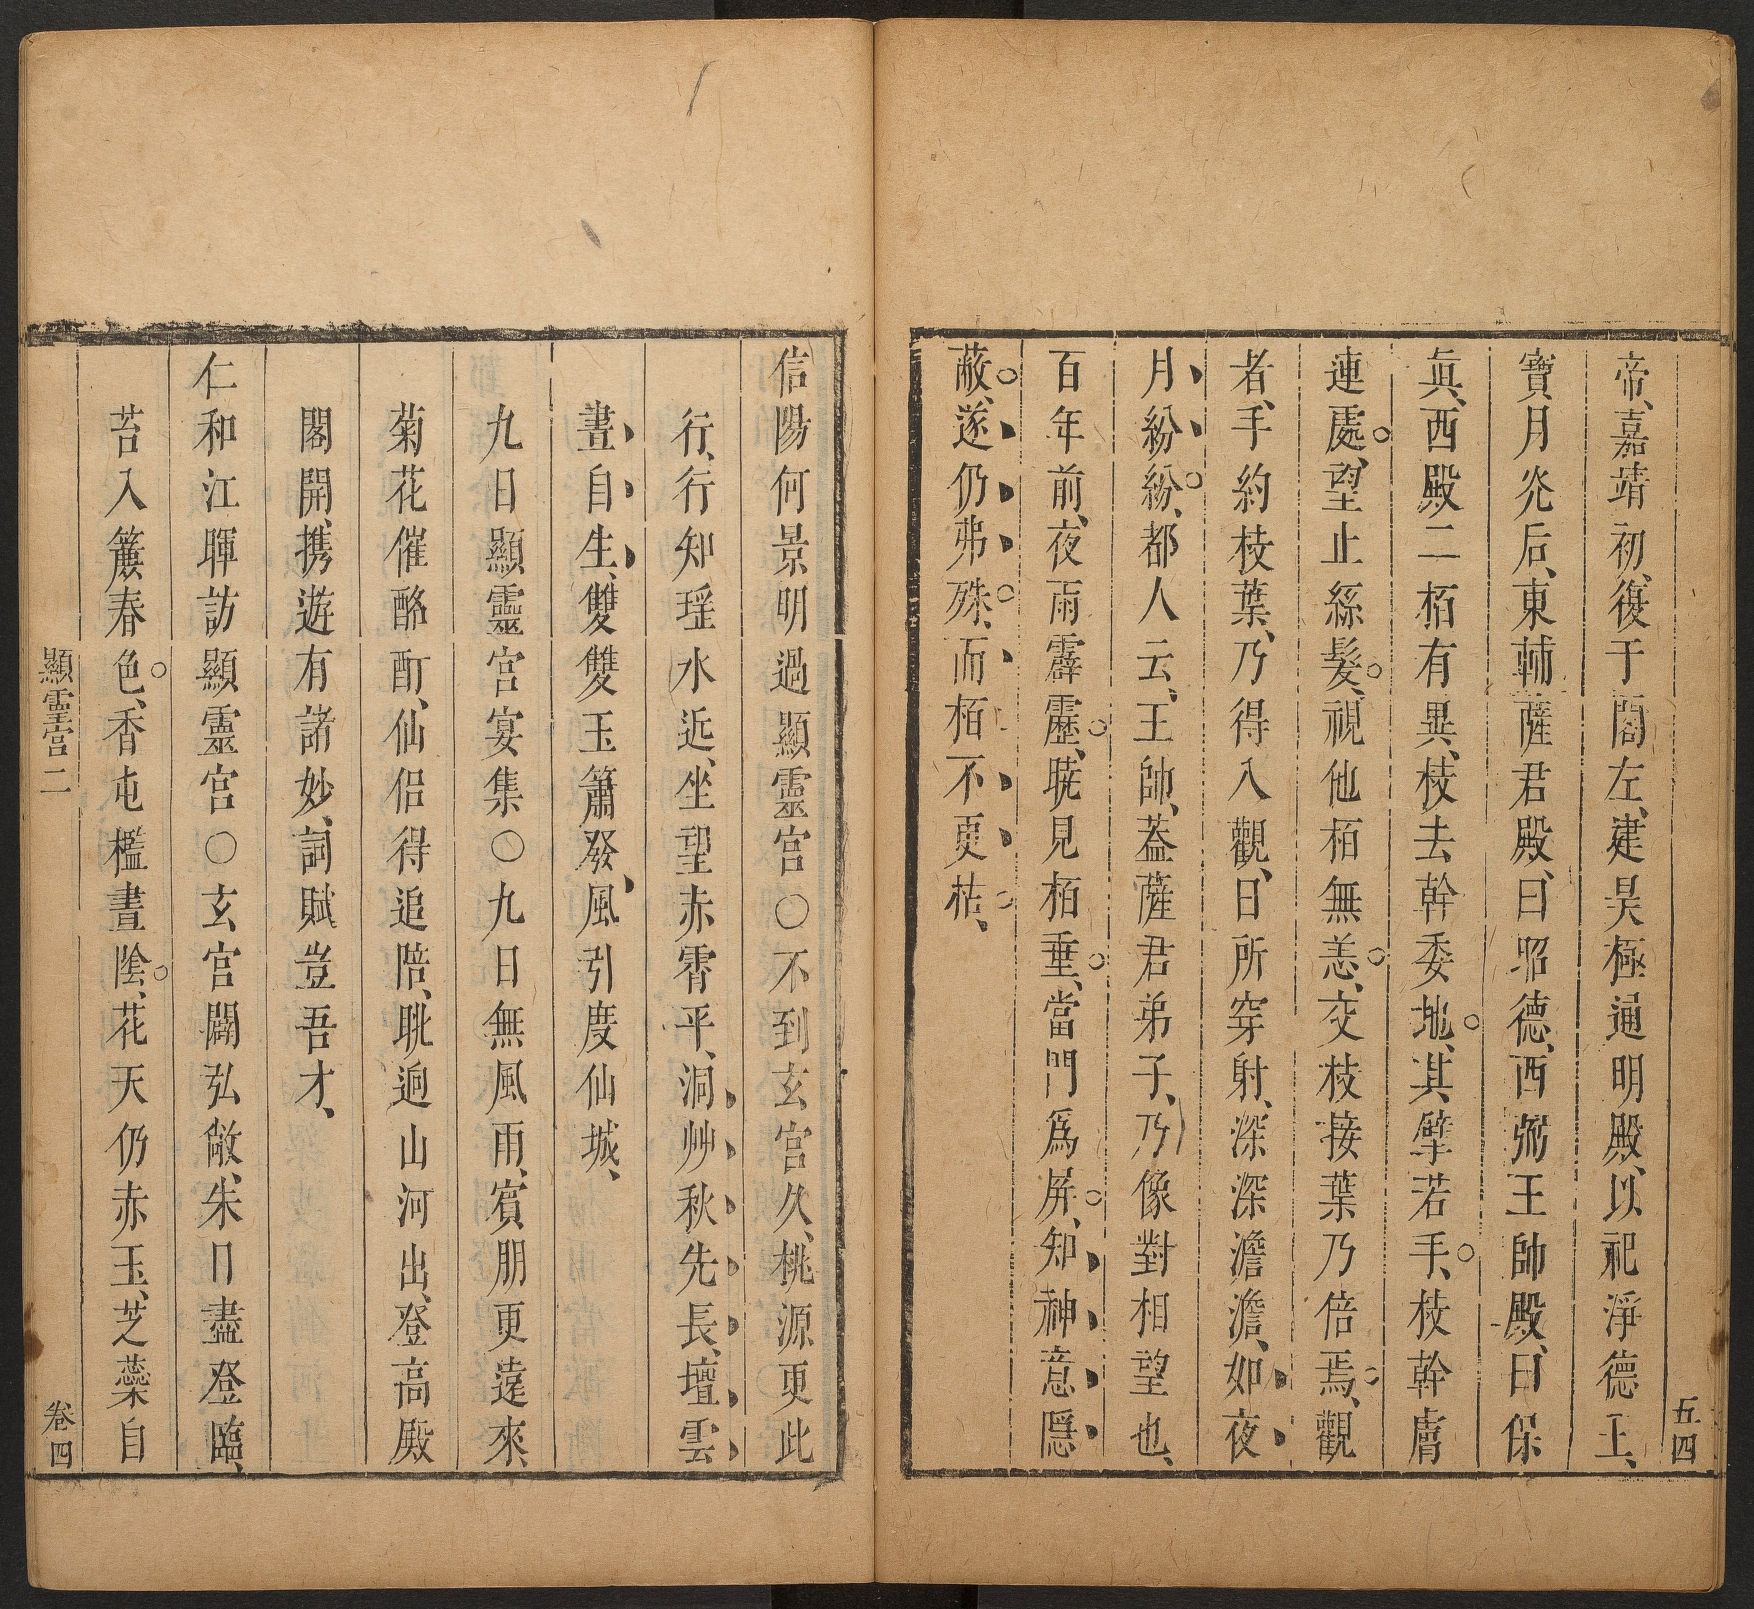 五四
帝、嘉靖初、復于閣左、建昊極通明殿、以祀淨德王、
寶月光后、東輔薩君殿、曰昭德、西弼王帥殿、曰保
眞、西殿二栢有異、枝去幹委地、其擘若手、枝幹膚
連處、望止絲髮、視他栢無恙、交枝接葉乃倍焉、觀
者、手約枝葉、乃得入觀、日所穿射、深深澹澹、如夜
月紛紛、都人云、王帥、葢薩君弟子、乃像對相望也、
百年前、夜雨霹靂、曉見栢垂、當門爲屏、知神意隱
蔽、遂仍弗殊、而栢不更枯、
信陽何景明過顯靈宮○不到玄宮久、桃源更此
行、行知瑶水近、坐望赤霄平、洞艸秋先長、壇雲
晝自生、雙雙玉簫發、風引度仙城、
九日顯靈宮宴集○九日無風雨、賓朋更遠來、
菊花催酩酊、仙侶得追陪、眺逈山河出、登高殿
閣開、携遊有諸妙、詞賦豈吾才、
仁和江暉訪顯靈宮○玄宮闢弘敞、朱日盡登臨、
苔入簾春色、香屯檻晝陰、花天仍赤玉、芝蘂自
顯靈宮二
卷四